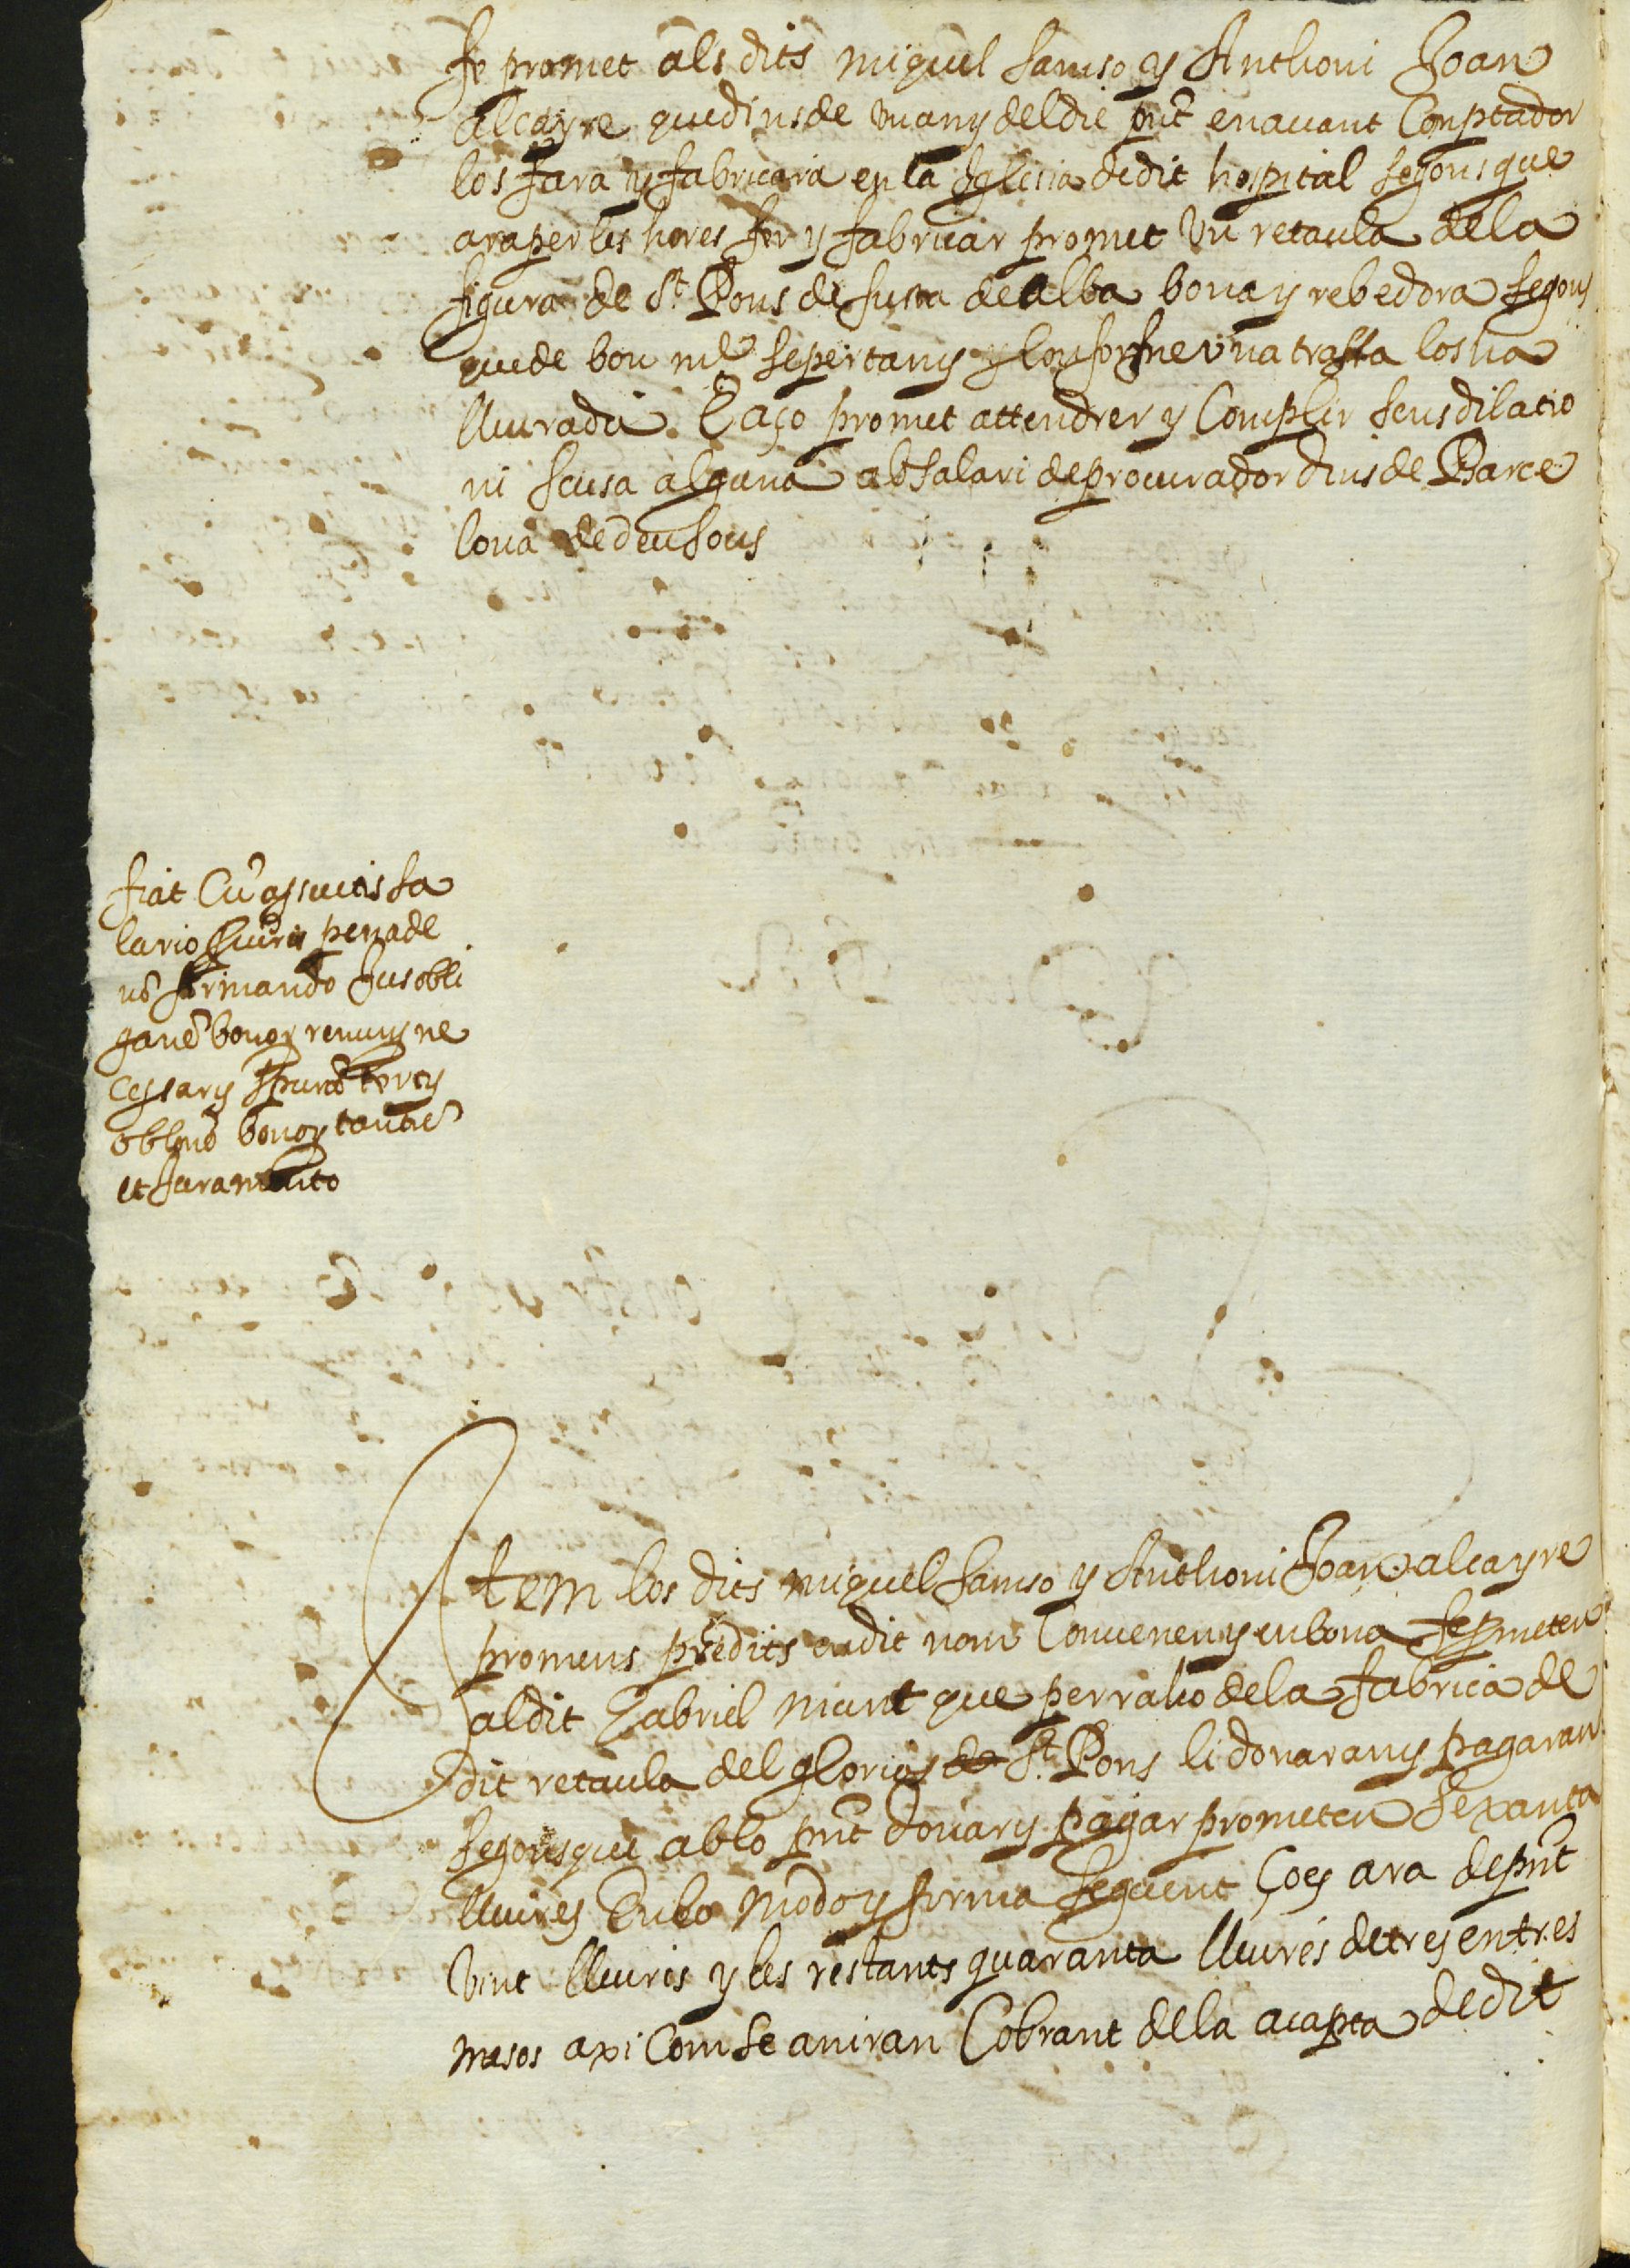 fe promet als dits miquel samso y Anthoni Joan
alcayre que dins de un any del die pnt en avant Comptador
los fara y fabricara en la Iglesia de dit hospital segons que
ara per les hores fer y fabricar promet un retaula de la
figura de St. Pons de fusta de alba bona y rebedora segons
que de bon me se pertany y conforme una trassa los ha
lliurada. E aço promet attendrer y Complir sens dilatio
ni scusa alguna ab salari de procurador dins de Barce
lona de deu sous
fiat Cu assuetis sa
lario pena de
no firmando Jus obli
gane bonor renunys ne
cessarys tercy
obligno bonor
et Juramento
Item los dits miquel samso y Anthoni Joan alcayre
promens predits en dit nom Convenen y en bona fe prometen
al dit Gabriel munt que per raho de la fabrica de
dit retaula del glorios de St. Pons li donaran y pagaran
segons que ab lo pnt donar y pagar prometen sexanta
lliures En lo modo y forma seguent ço es ara de pnt
vint lliures y les restants quaranta lliures de tres en tres
mesos axi Com se aniran Cobrant de la acapta de dit